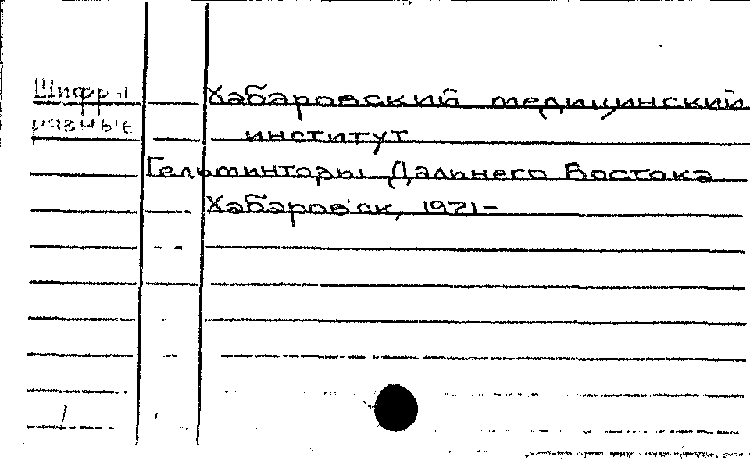 Шифры
разные
Хабаровский медицинский
институт
Гельминтозы Дальнего Востока
Хабаровск, 1971-